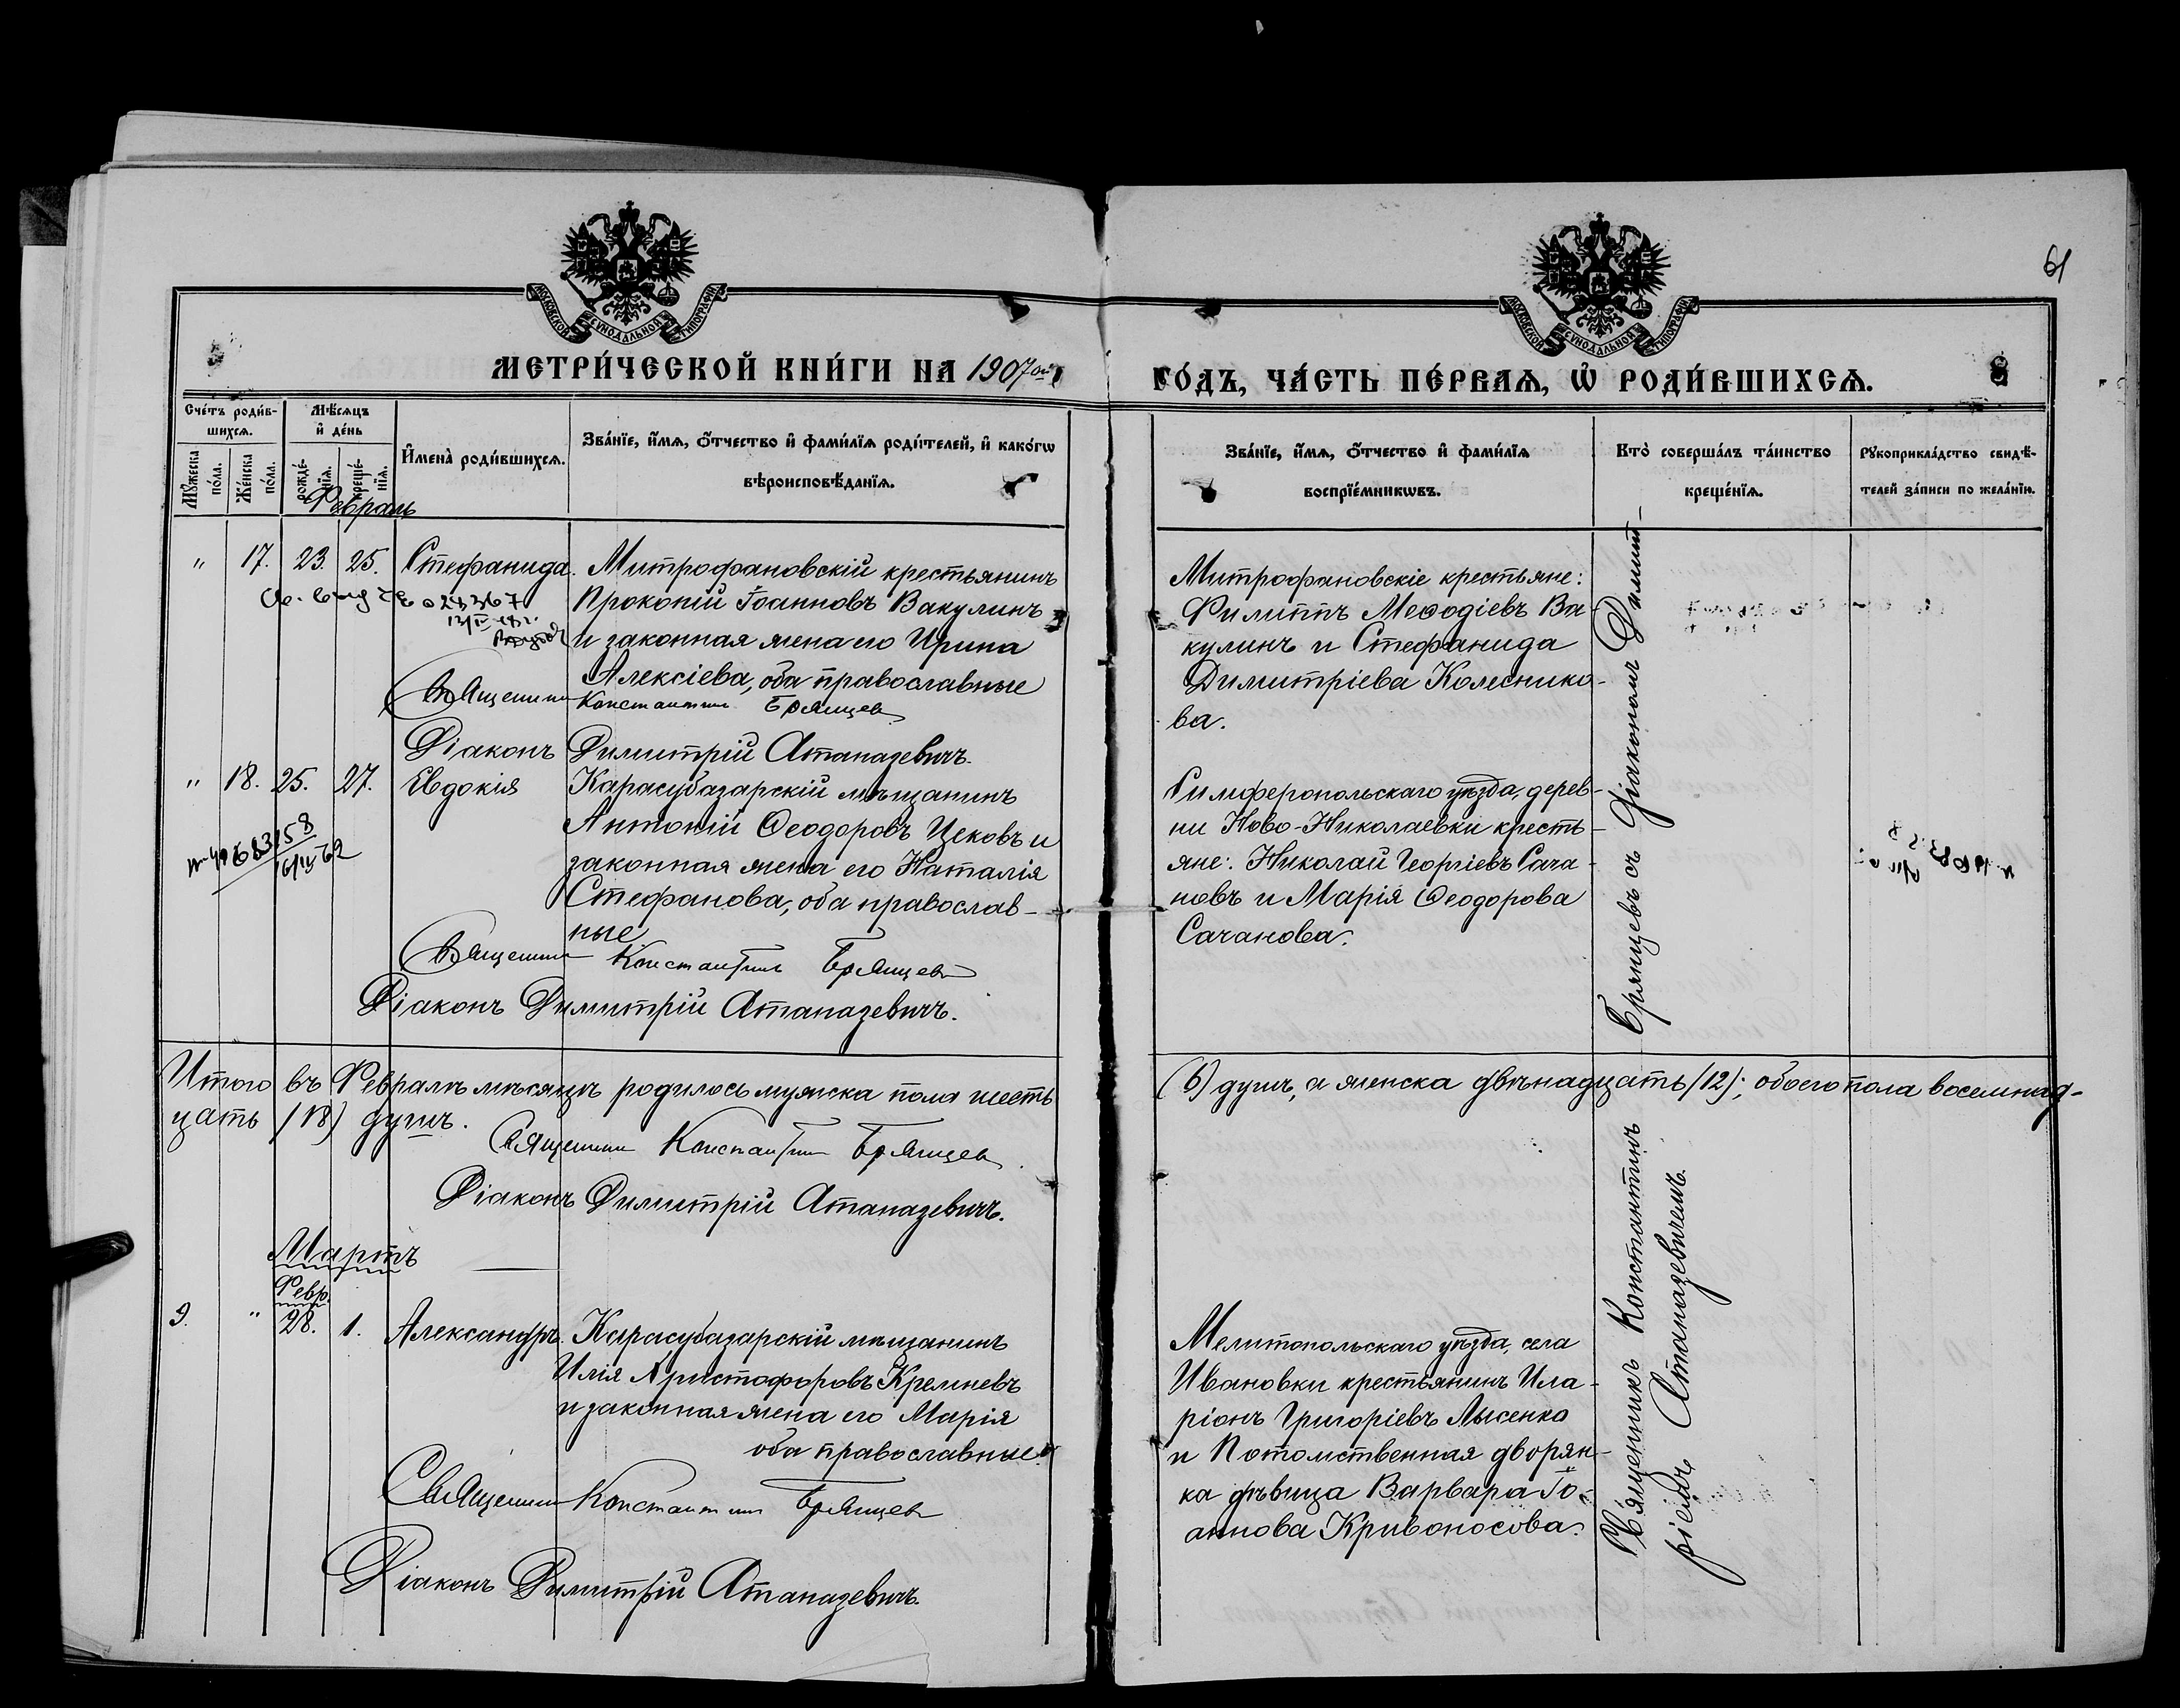 61
МОСКОВСКОЙ СѴНОДАЛЬНОЙ ТИПОГРАФІИ
МОСКОВСКОЙ СѴНОДАЛЬНОЙ ТИПОГРАФІИ
МЕТРИ́ЧЕСКОЙ КНИ́ГИ НА 1907ой
ГО́ДЪ, ЧА́СТЬ ПЕ́РВАѦ, Ѡ҆ РОДИ́ВШИХСѦ.
8
Сче́тъ роди́в-
шихсѧ.
Мѣ́сѧцъ
и҆ де́нь
Мꙋ́жеска
по́ла.
Же́нска
по́ла.
рожде́-
нїѧ.
креще́-
нїѧ.
И҆мена̀ роди́вшихсѧ.
Зва́нїе, и҆́мѧ, ѻ҆́тчество и҆ фами́лїѧ роди́телей, и҆ како́гѡ
вѣроисповѣ́данїѧ.
Зва́нїе, и҆́мѧ, ѻ҆́тчество и҆ фами́лїѧ
воспрїе́мникѡвъ.
Кто̀ соверша́лъ та́инство
креще́нїѧ.
Рꙋкоприкла́дство свидѣ́-
телей за́писи по жела́нїю.
Февраль
" 17. 23. 25. Стефанида. Митрофановскій крестьянинъ
Прокопій Іоанновъ Вакулинъ
и законная жена его Ирина
Алексіева, оба православные
Священник Константин Брянцев
Діаконъ Димитрій Атаназевичъ.
Митрофановскіе крестьяне:
Филиппъ Меѳодіевъ Ва-
кулинъ и Стефанида
Димитріева Колеснико-
ва.
" 18. 25. 27. Евдокія Карасубазарскій мѣщанинъ
Антоній Ѳеодоровъ Цековъ и
законная жена его Наталія
Стефанова, оба православ-
ные
Священник Константин Брянцев
Діаконъ Димитрій Атаназевичъ.
Симферопольскаго уѣзда, дерев-
ни Ново-Николаевки кресть-
яне: Николай Георгіевъ Сача-
новъ и Марія Ѳеодорова
Сачанова.
Итого въ Февралѣ мѣсяцѣ родилось мужска пола шесть
(6) душъ, а женска двѣнадцать (12); обоего пола восемнад-
цать (18) душъ.
Священник Константин Брянцев
Діаконъ Димитрій Атаназевичъ.
Мартъ
Февр.
9. " 28. 1. Александръ. Карасубазарскій мѣщанинъ
Илія Христофоровъ Кремневъ
и законная жена его Марія
оба православные.
Священник Константин Брянцев
Діаконъ Димитрій Атаназевичъ.
Мелитопольскаго уѣзда, села
Ивановки крестьянинъ Ила-
ріонъ Григоріевъ Лысенко
и Потомственная дворян-
ка дѣвица Варвара Іо-
аннова Кривоносова.
Священникъ Константинъ Брянцевъ съ діакономъ Димит-
ріемъ Атаназевичемъ.